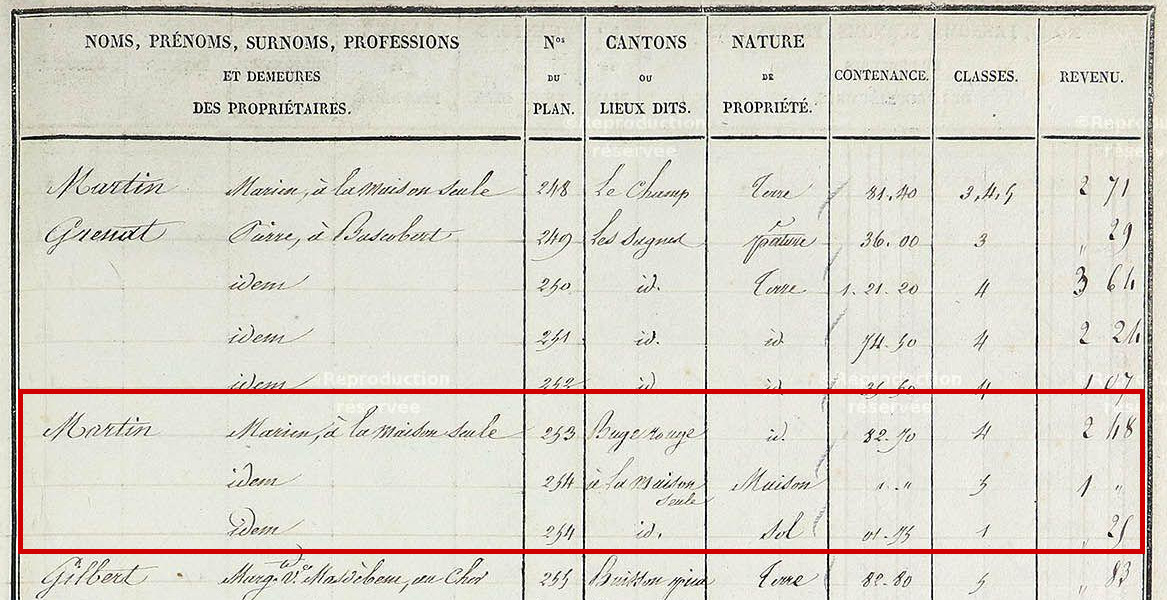 NOMS, PRÉNOMS, SURNOMS, PROFESSIONS
ET DEMEURES
DES PROPRIÉTAIRES.
Nos
DU
PLAN.
CANTONS
OU
LIEUX DITS.
NATURE
DE
PROPRIÉTÉ.
CONTENANCE.
CLASSES.
REVENU.
Martin Marien, à la maison seule 248 Le Champ Terre 81.40 3,4,5 2 71
Grenat Pierre, à Bascobert 249 Les Sagnes pature 36.00 3 „ 29
idem 250 id. Terre 1.21.20 4 3 64
idem 251 id. id 74.50 4 2 24
idem 252 id id 4 1 07
Martin Marien, à la maison seule 253 Buge rouge id. 82.70 4 2 48
idem 254 à la Maison seule Maison „.„ 5 1 „
idem 254 id. Sol 01.75 1 „ 25
Gilbert Marg. Ve au Cher 255 Buisson Terre 82.80 5 „ 83
©Reproduction
réservée
©Reproduction
réservée
©Reproduction
réservée